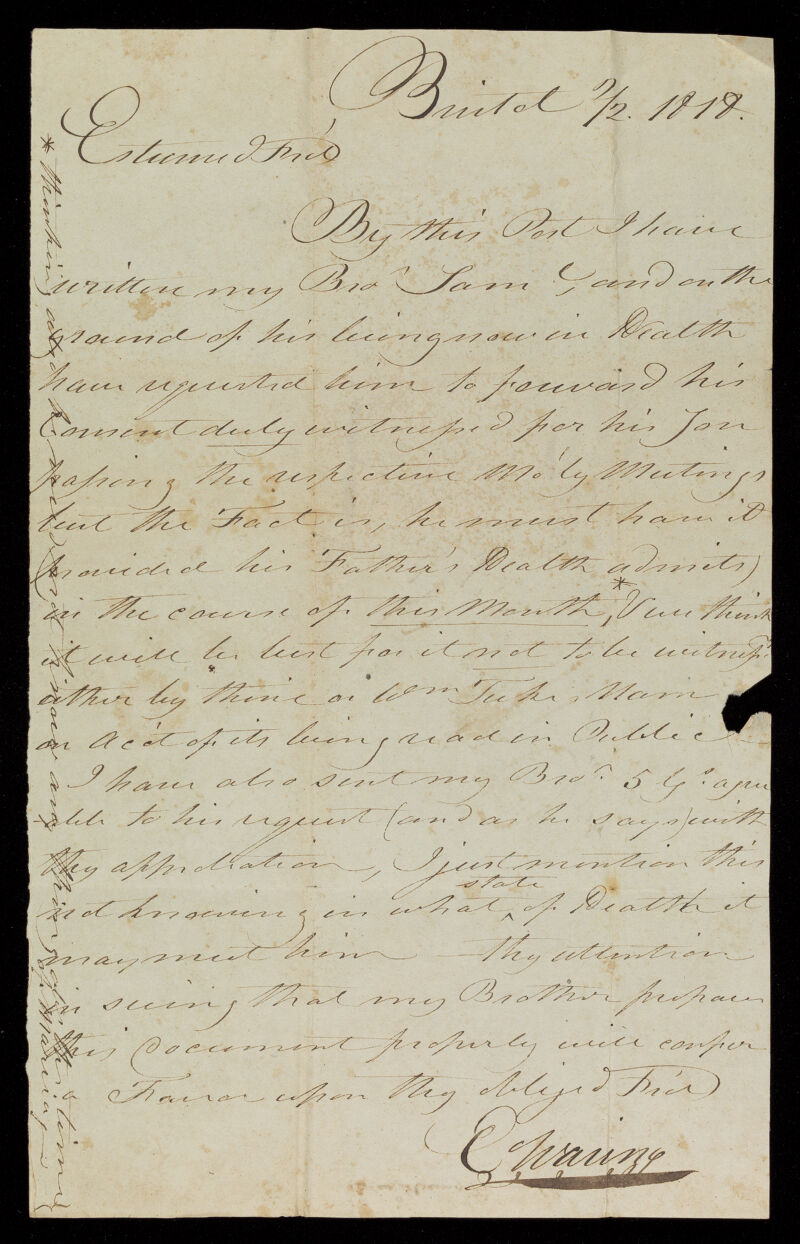 Bristol 7/2. 1818.
Esteemed Fr'd
By this Post I have
written my Bror Saml, and on the
ground of his being now in Health
have requested him to forward his
Consent duly witnessed for his Son
passing the respective Mo'ly Meetings
but the Fact is, he must have it
(provided his Father's Health admits)
in the course of this Month,* & we think
it will be best for it not to be witness'd
either by thine or Wm Tuke's Name
on Acc't of its being read in Public
I have also sent my Bror. 5 Gs. agree
able to his request (and as he says) with
thy approbation, I just mention this
not knowing in what state of Health it
may meet him — thy attention
in seeing that my Brother prepares
this Document properly will confer
Favor upon thy obliged Fr'd
E Waring
* thinking
and is now
thing of
times
of Marriage